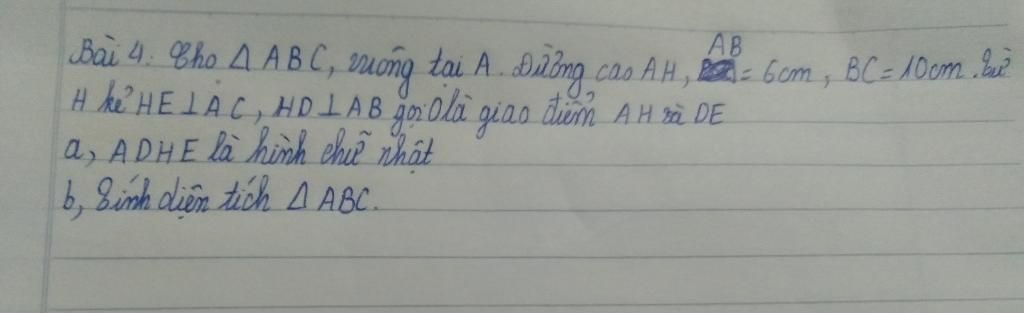 Bài 4: Cho △ ABC, vuông tại A. Đường cao AH, AB = 6cm, BC = 10cm. Từ
H kẻ HE ⊥ AC, HD ⊥ AB gọi O là giao điểm AH và DE
a, ADHE là hình chữ nhật
b, Tính diện tích △ ABC.